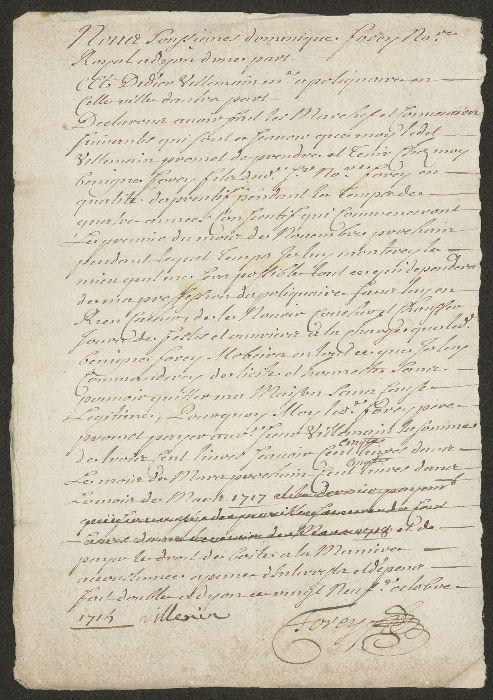 Nous soussignés dominique forey No.re
Royal a dyon d'une part
Et Didier Villemain m.e apotiquaire en
Cette ville dautre part
Declarons avoir fait les Marchef et Conventions
suivantes qui sont a scavoir que moy led.
Villemain promet de prendre et tenir chez moy
benigne forey fils dud. s.r No.re forey en
qualité daprentif pendant le temps de
quatre années Consecutifs qui Commenceront
Le premier du mois de Novembre prochain
pendant lequel temps Je luy montrerey le
mieu quil me sera possible tout ce qui dependera
de ma profession dapotiquaire sans luy en
Rien de le Nourir Coucher et Chauffer
Jours de festes et ouvriers a la charge que led.
benigne forey Mobeira en tout ce que Je luy
Commanderey de licite et honneste sans
pouvoir quitter ma Maison sans Cause
Legitime, Pourquoy Moy led. s.r Forey pere
promet payer aud. sieur Villemain la somme
de trois Cent livres scavoir Cent livres dans
Le mois de Mars prochain Cent livres dans
Le mois de Mars 1717
et de
payer le droit de boites a la Maniere
accoutumee a peine d'Interests et depens
fait double a dyon ce vingt Neuf.e octobre
1714 Villemin
Forey